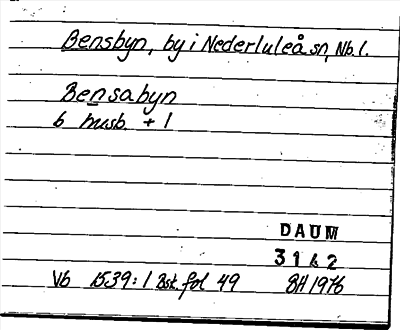 Bensbyn, by i Nederluleå sn, Nb. l.
Bensabyn
6 husb. + 1
DAUM
3142
Vb 1539: 1 Bsk. fol 49 BH 1976